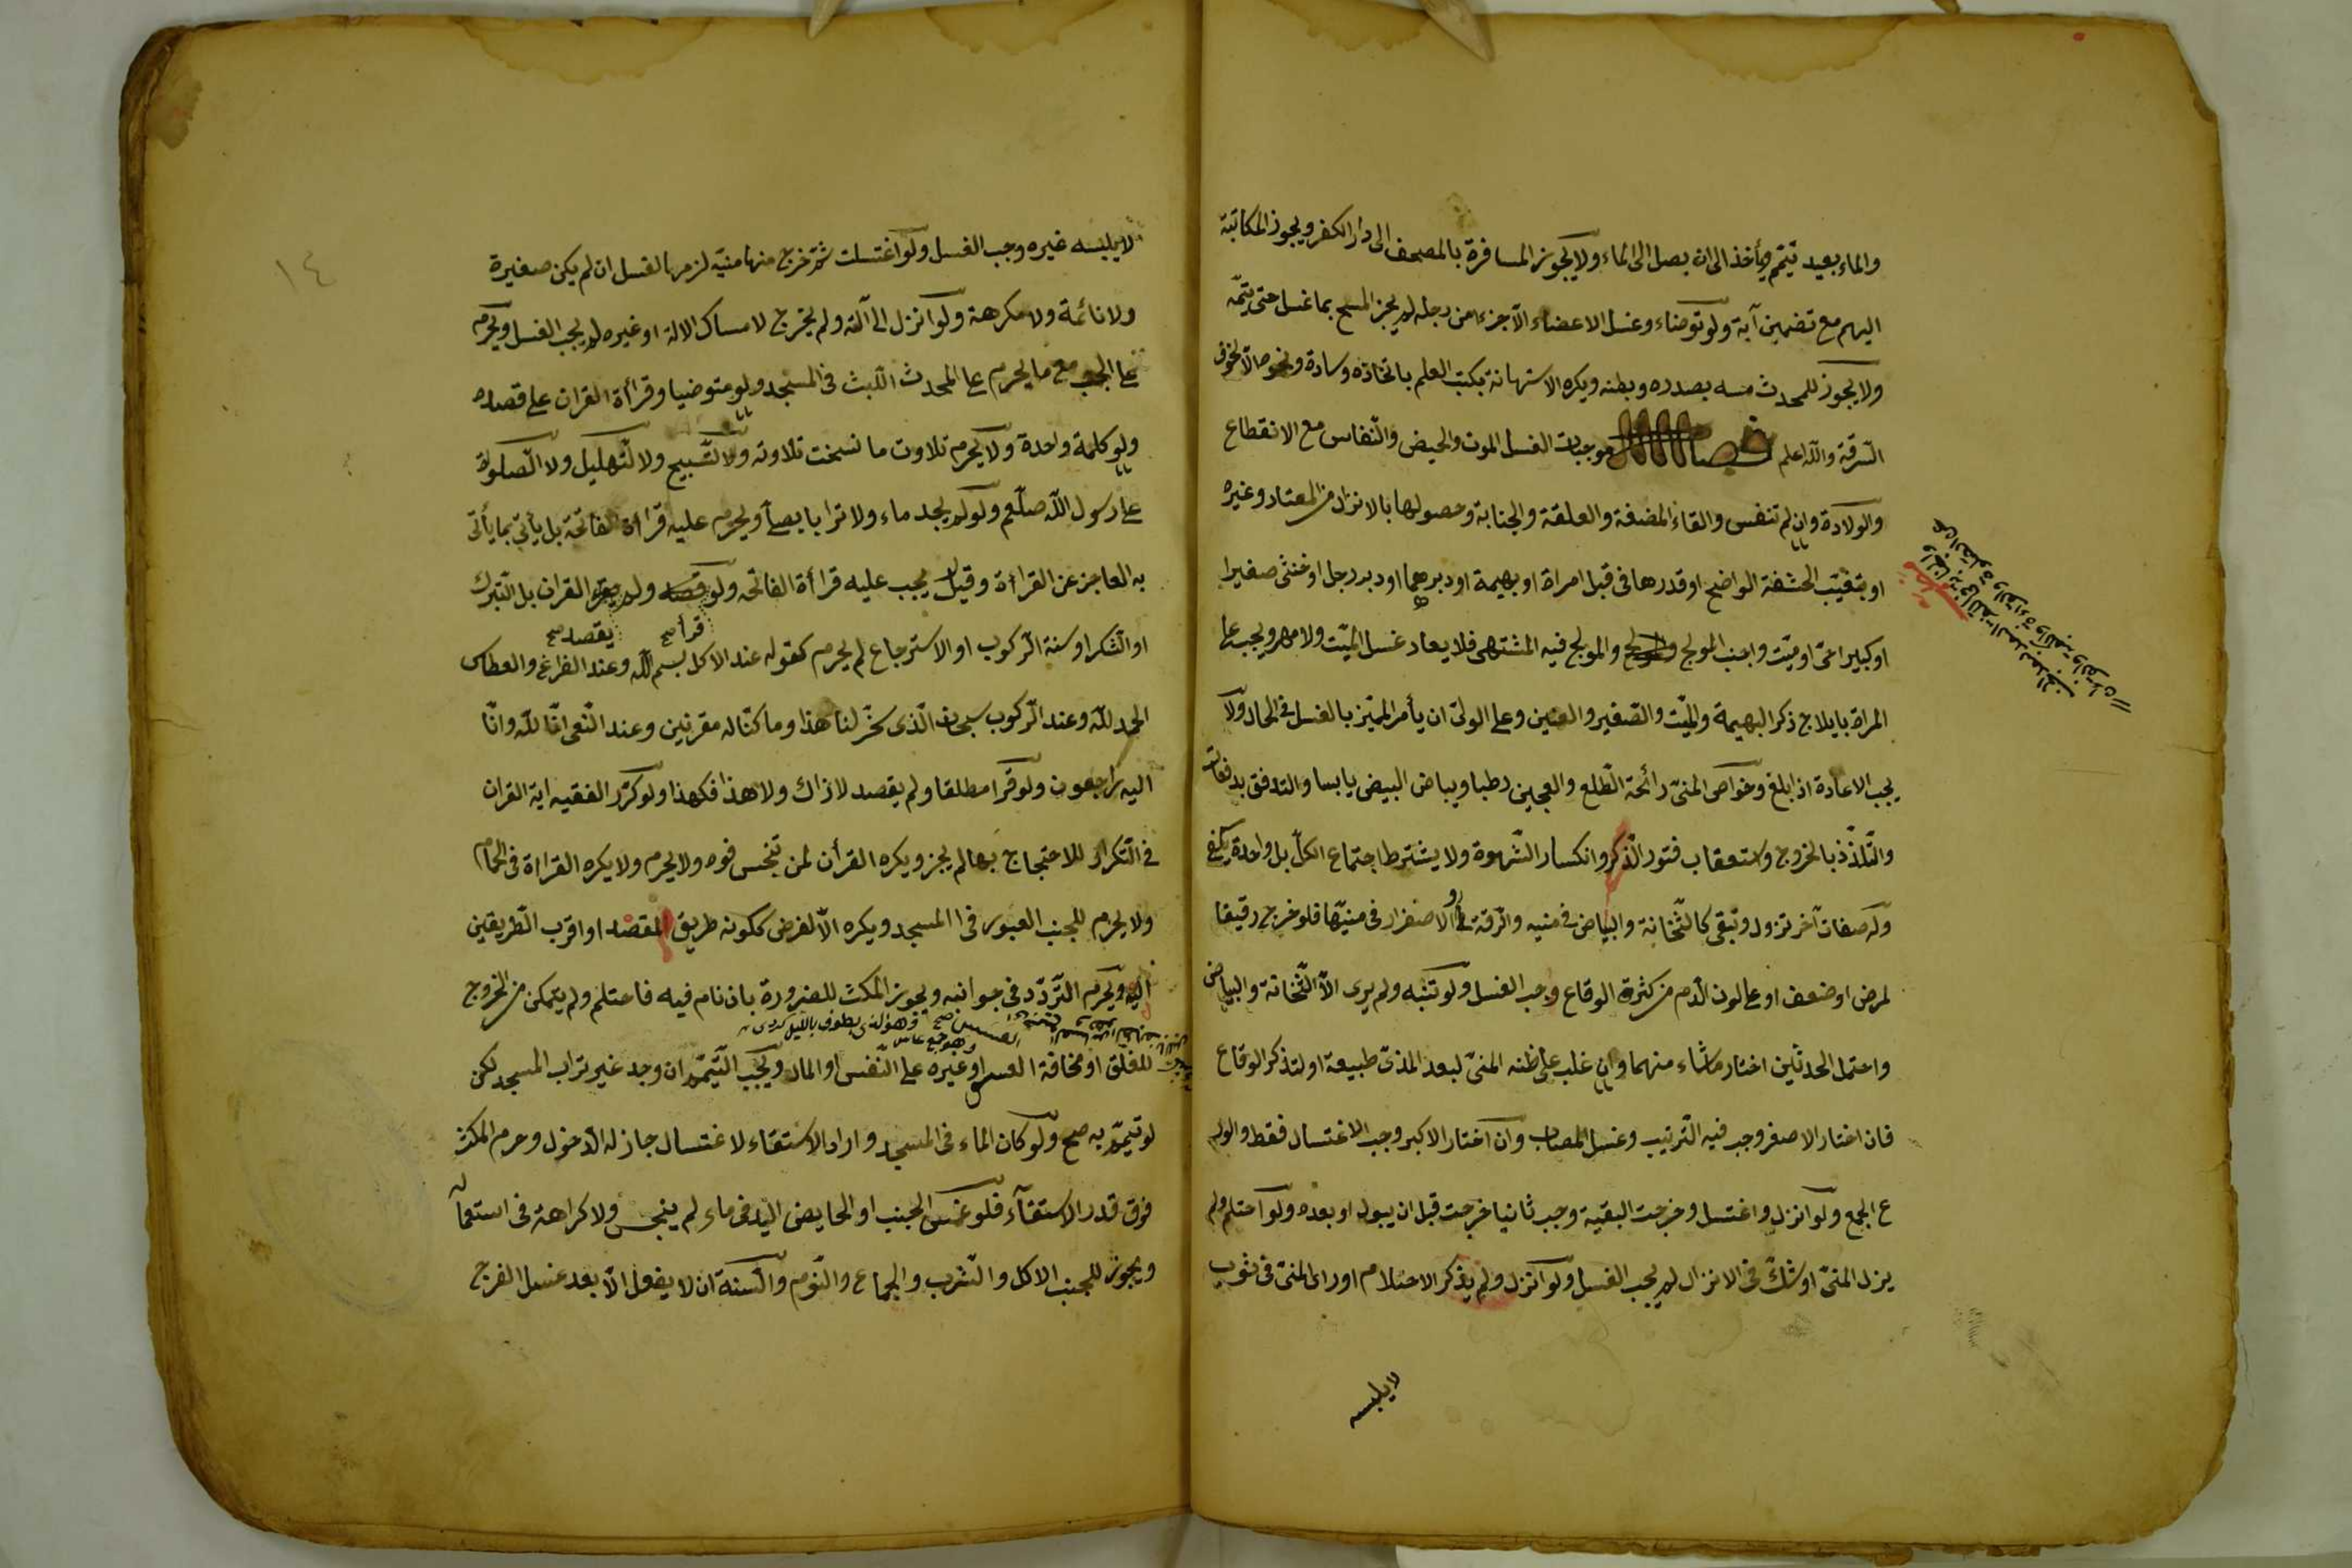 والماء بعيد تيمّم ويأخذ الى ان يصل الى الماء ولا يجوز المسافرة بالمصحف الى دار الكفر ويجوز المكاتبة
اليهم مع تضمين آية ولو توضاء وغسل الاعضاء الّا جزءا من رجله لم يجز المسح بما غسل حتى يتمّه
ولا يجوز للمحدث مسه بصدره وبطنه ويكره الاستهانة بكتب العلم باتخاذه وسادة ونحوها الّا لخوف
السّرقة واللّه اعلم فصل موجبات الغسل الموت والحيض والنّفاس مع الانقطاع
والولادة وان لم تنفس والقاء المضغة والعلقة والجنابة وحصولها بالانزال من المعتاد وغيره
او بتغيّب الحشفة الواضح او قدرها فى قبل امراة او بهيمة او دبرهما او دبر رجل او خنثى صغيرا
او كبيرا حىّ او ميّت واجنب المولج والمولج فيه المشتهى فلا يعاد غسل الميّت ولا مهر ويجب على
المراة بايلاج ذكر البهيمة والميّت والصّغير والعنين وعلى الولىّ ان يأمر المميّز بالغسل فى الحال ولا
يجب الاعادة اذا بلغ وخواص المنىّ رائحة الطّلع والعجين رطبا وبياض البيض يابسا والتدفق بدفعات
والتّلذّذ بالخروج واستعقاب فتور الذّكر وانكسار الشّهوة ولا يشترط اجتماع الكلّ بل واحدة يكفى
وله صفات آخر تزول وتبقى كالثّخانة والبياض فى منيه والرّقة والاصفرار فى منيّها فلو خرج رقيقا
لمرض او ضعف او على لون الدّم من كثرة الوقاع وجب الغسل ولو تنبّه ولم يرى الّا الثّخانة والبياض
واحتمل الحدثين اختار ما شاء منهما وان غلب على ظنه المنىّ لبعد المذىّ طبيعة او لتذكر الوقاع
فان اختار الاصغر وجب فيه التّرتيب وغسل المصاب وان اختار الاكبر وجب الاغتسال فقط والورع
ع الجمع ولو انزل واغتسل وخرجت البقية وجب ثانيا خرجت قبل ان يبول او بعده ولو احتلم ولم
ينزل المنىّ او شكّ فى الانزال لم يجب الغسل ولو انزل ولم يذكر الاحتلام او راى المنىّ فى ثوب
لا يلبسه
١٤
لا يلبسه غيره وجب الغسل ولو اغتسلت ثمّ خرج منها منيّه لزمها الغسل ان لم يكن صغيرة
ولا نائمة ولا مكرهة ولو انزل الى آلته ولم يخرج لامساك الالة او غيره لم يجب الغسل ويحرم
على الجنب مع ما يحرم على المحدث اللّبث فى المسجد ولو متوضيا وقراءة القران على قصده
ولو كلمة واحدة ولا يحرم تلاوت ما نسخت تلاوته ولا التّسبيح ولا التّهليل ولا الصّلوة
على رسول اللّه صلّعم ولو لم يجد ماء ولا ترابا يصلّ ويحرم عليه قراءة الفاتحة بل يأتى بما يأتى
به العاجز عن القراءة وقيل يجب عليه قراءة الفاتحه ولو ولم القران بل التّبرك
قرأ صح يقصد صح
او الشكر او سنة الرّكوب او الاسترجاع لم يحرم كقوله عند الاكل بسم اللّه وعند الفراغ والعطاس
الحمد للّه وعند الرّكوب سبحان الّذى سخّر لنا هذا وما كنّا له مقرنين وعند النّعى انّا للّه وانّا
اليه راجعون ولو قرا مطلقا ولم يقصد لا ذاك ولا هذا فكهذا ولو كرّر الفقيه اية القران
فى التّكرار للاحتجاج بها لم يجز ويكره القرأن لمن تنجّس فوه ولا يحرم ولا يكره القراءة فى الحمّام
ولا يحرم للجنب العبور فى المسجد ويكره الّا لغرض ككونه طريق المقصد او اقرب الطّريقين
اليه ويحرم التّردّد فى جوانبه ويجوز المكث للضرورة بان نام فيه فاحتلم ولم يتمكن من الخروج
وهو الذى يطوف بالليل
وهو جمع عاس
للغلق او مخافة العسس او غيره على النّفس او المال ويجب التّيمّم ان وجد غير تراب المسجد لكن
لو تيمّم به صح ولو كان الماء فى المسجد واراد الاستقاء لاغتسال جاز له الدّخول وحرم المكث
فوق قدر الاستقآء فلو غمس الجنب او الحايض اليد فى ماء لم ينجس ولا كراهة فى استعماله
ويجوز للجنب الاكل والشّرب والجماع والنّوم والسّنة ان لا يفعل الّا بعد غسل الفرج